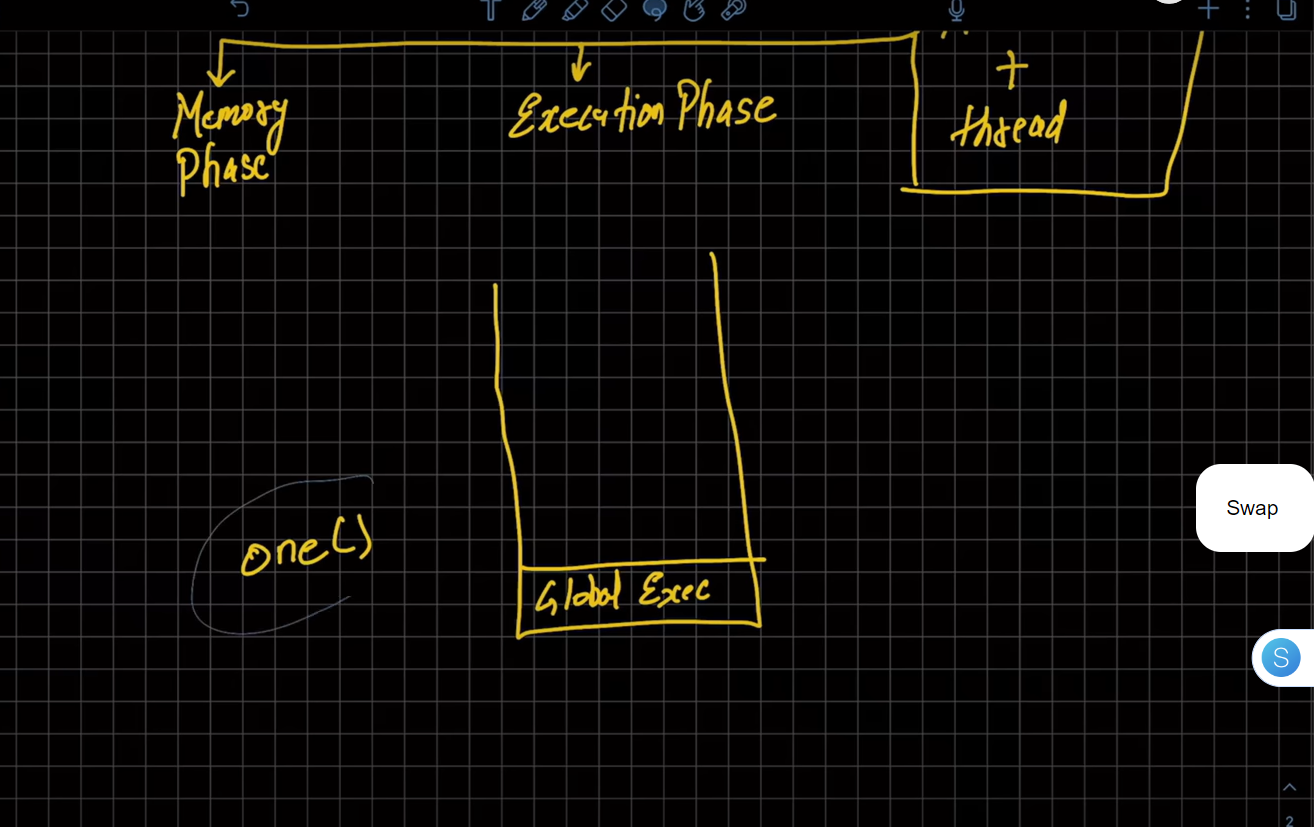 Memory
Phase
Execution Phase
+
thread
one()
Global Exec
Swap
S
2